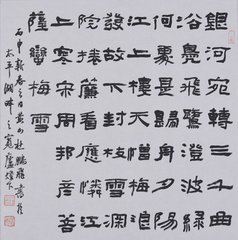 銀河宛轉三千曲
浴鳧飛鷺澄波綠
何處是歸舟夕陽
江上樓天憎梅浪
發故下封枝雪深
院捲簾看應憐江
上寒宋周邦彦菩
薩蠻梅雪
丙申新春之日黃山杜鵬書於
太平湖畔之廬燈下